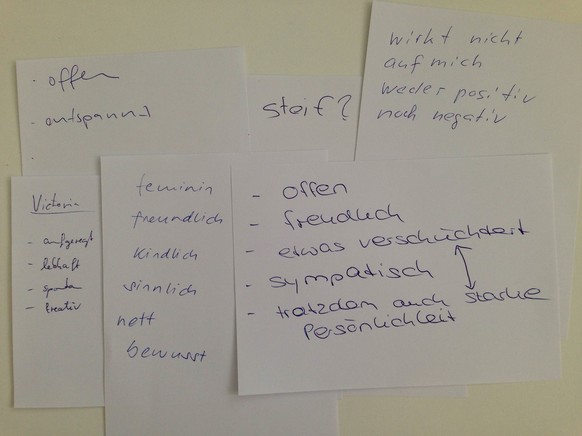 - offen
- entspannt
-
steif?
wirkt nicht
auf mich
weder positiv
noch negativ
Victoria
- aufgeregt
- lebhaft
- spontan
- kreativ
feminin
freundlich
kindlich
sinnlich
nett
bewusst
- offen
- freudlich
- etwas verschüchtert
- sympatisch
- trotzdem auch starke
Persönlichkeit